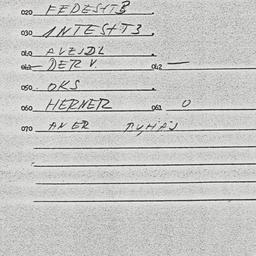 020 FEDESHTB
030 ANTESHT3
040 AVEJDL
DERV 042 —
050 OKS
060 HERNER 061 0
070 ANER RUHAJ